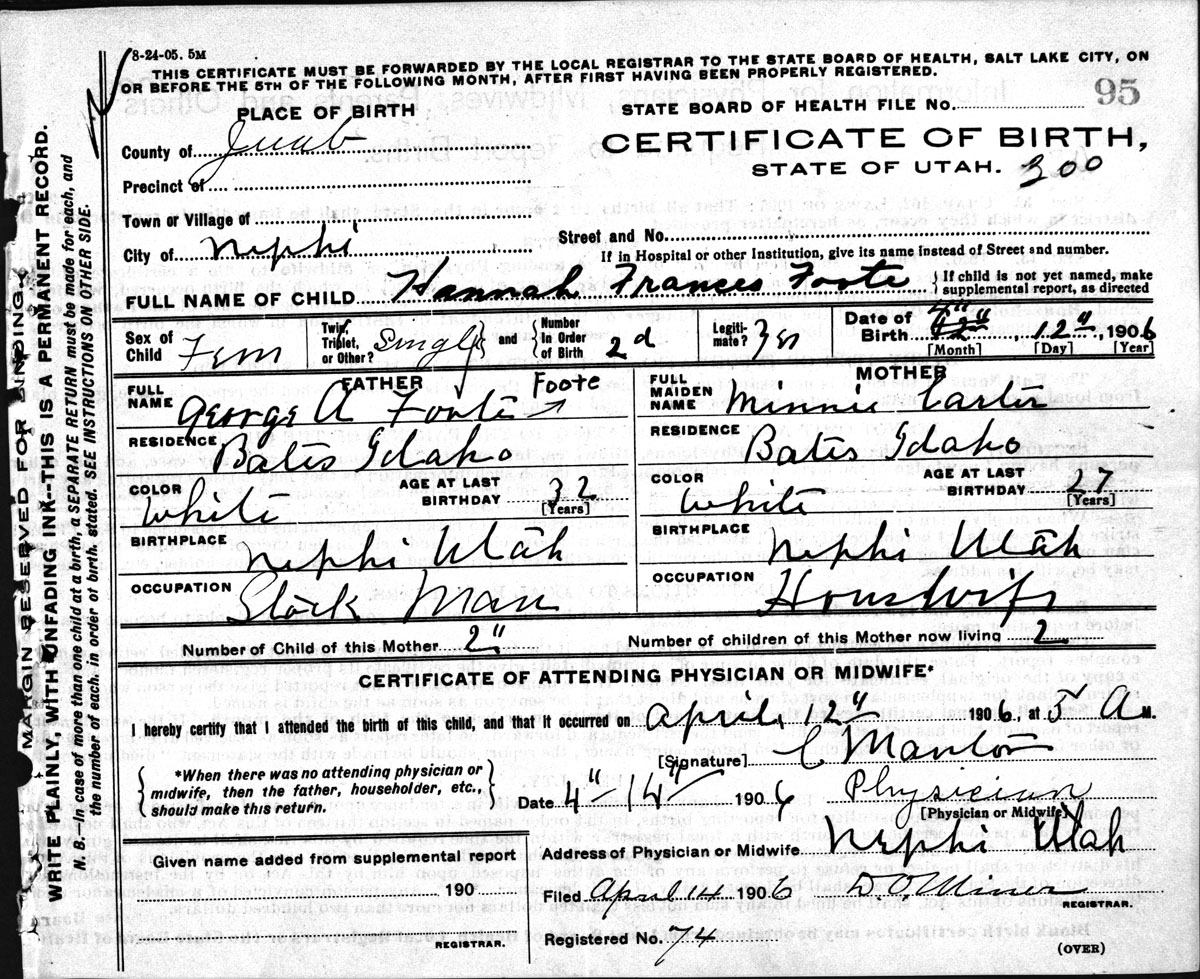 8-24-05. 5M
THIS CERTIFICATE MUST BE FORWARDED BY THE LOCAL REGISTRAR TO THE STATE BOARD OF HEALTH, SALT LAKE CITY, ON
OR BEFORE THE 5TH OF THE FOLLOWING MONTH, AFTER FIRST HAVING BEEN PROPERLY REGISTERED.
MARGIN RESERVED FOR BINDING.
WRITE PLAINLY WITH UNFADING INK--THIS IS A PERMANENT RECORD.
N. B.--In case of more than one child at a birth, a SEPARATE RETURN must be made for each, and
the number of each, in order of birth, stated. SEE INSTRUCTIONS ON OTHER SIDE.
PLACE OF BIRTH
STATE BOARD OF HEALTH FILE No. 95
County of Juab
CERTIFICATE OF BIRTH,
STATE OF UTAH. 300
Precinct of
Town or Village of
City of Nephi
Street and No.
If in Hospital or other Institution, give its name instead of Street and number.
FULL NAME OF CHILD Hannah Frances Foote
If child is not yet named, make
supplemental report, as directed
Sex of Child Fem
Twin, Triplet, or Other? Single
and Number In Order of Birth 2d
Legitimate? Yes
Date of Birth 4" 12", 1906
[Month] [Day] [Year]
FATHER
FULL NAME George A Foote Foote
RESIDENCE Bates Idaho
COLOR White
AGE AT LAST BIRTHDAY 32 [Years]
BIRTHPLACE Nephi Utah
OCCUPATION Stock Man
MOTHER
FULL MAIDEN NAME Minnie
RESIDENCE Bates Idaho
COLOR White
AGE AT LAST BIRTHDAY 27 [Years]
BIRTHPLACE Nephi Utah
OCCUPATION Housewife
Number of Child of this Mother 2"
Number of children of this Mother now living 2
CERTIFICATE OF ATTENDING PHYSICIAN OR MIDWIFE*
I hereby certify that I attended the birth of this child, and that it occurred on April 12" 1906, at 5 A M.
[Signature] C
*When there was no attending physician or
midwife, then the father, householder, etc.,
should make this return.
Date 4" 14" 1906
Physician
[Physician or Midwife]
Address of Physician or Midwife Nephi Utah
Given name added from supplemental report
190
REGISTRAR.
Filed April 14 1906
REGISTRAR.
Registered No. 74
(OVER)